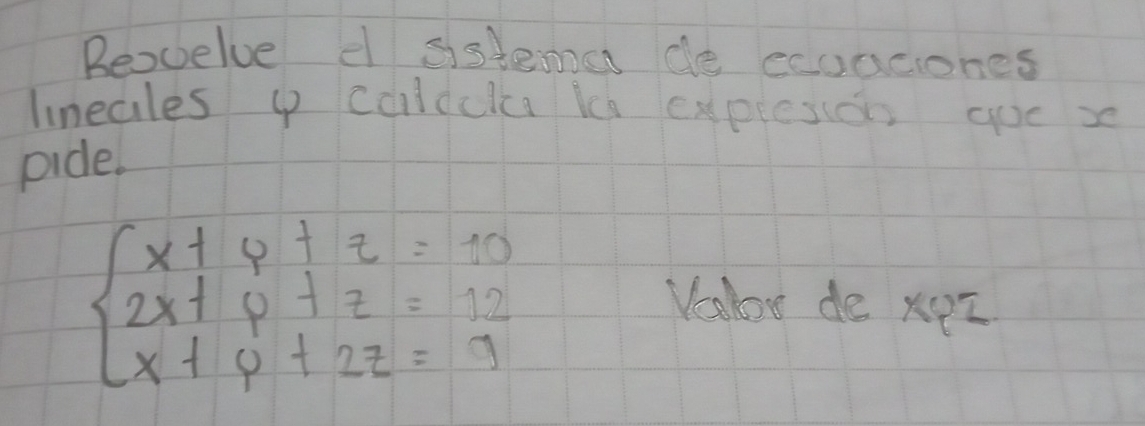 Resuelve el sistema de ecuaciones
lineales y calcula la expresión que se
pide.
x + y + z = 10
2x + y + z = 12 Valor de xyz
x + y + 2z = 9